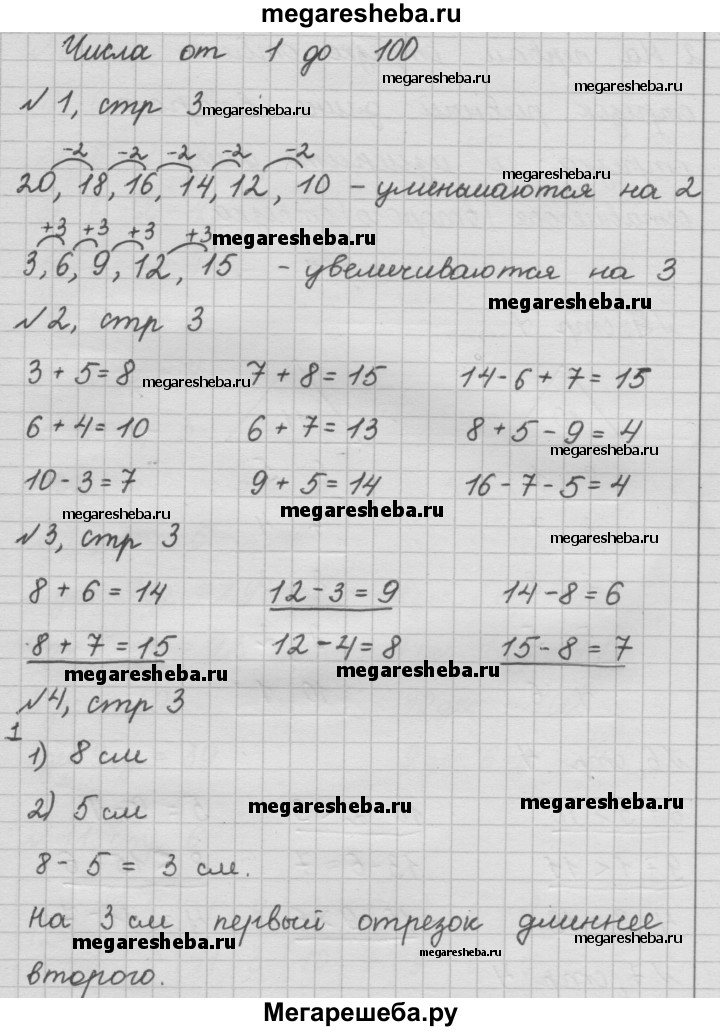 megaresheba.ru
Числа от 1 до 100
megaresheba.ru
№1, стр 3 megaresheba.ru
-2 -2 -2 -2 -2
megaresheba.ru
20, 18, 16, 14, 12, 10 - уменьшаются на 2
+3 +3 +3 +3 megaresheba.ru
3, 6, 9, 12, 15 - увеличиваются на 3
megaresheba.ru
№2, стр 3
3 + 5 = 8 megaresheba.ru 7 + 8 = 15 14 - 6 + 7 = 15
6 + 4 = 10 6 + 7 = 13 8 + 5 - 9 = 4
megaresheba.ru
10 - 3 = 7 9 + 5 = 14 16 - 7 - 5 = 4
megaresheba.ru megaresheba.ru
№3, стр 3 megaresheba.ru
8 + 6 = 14 12 - 3 = 9 14 - 8 = 6
8 + 7 = 15 12 - 4 = 8 15 - 8 = 7
megaresheba.ru megaresheba.ru
№4, стр 3
1
1) 8 см
2) 5 см megaresheba.ru megaresheba.ru
8 - 5 = 3 см.
На 3 см первый отрезок длиннее
megaresheba.ru megaresheba.ru megaresheba.ru
второго.
Мегарешеба.ру